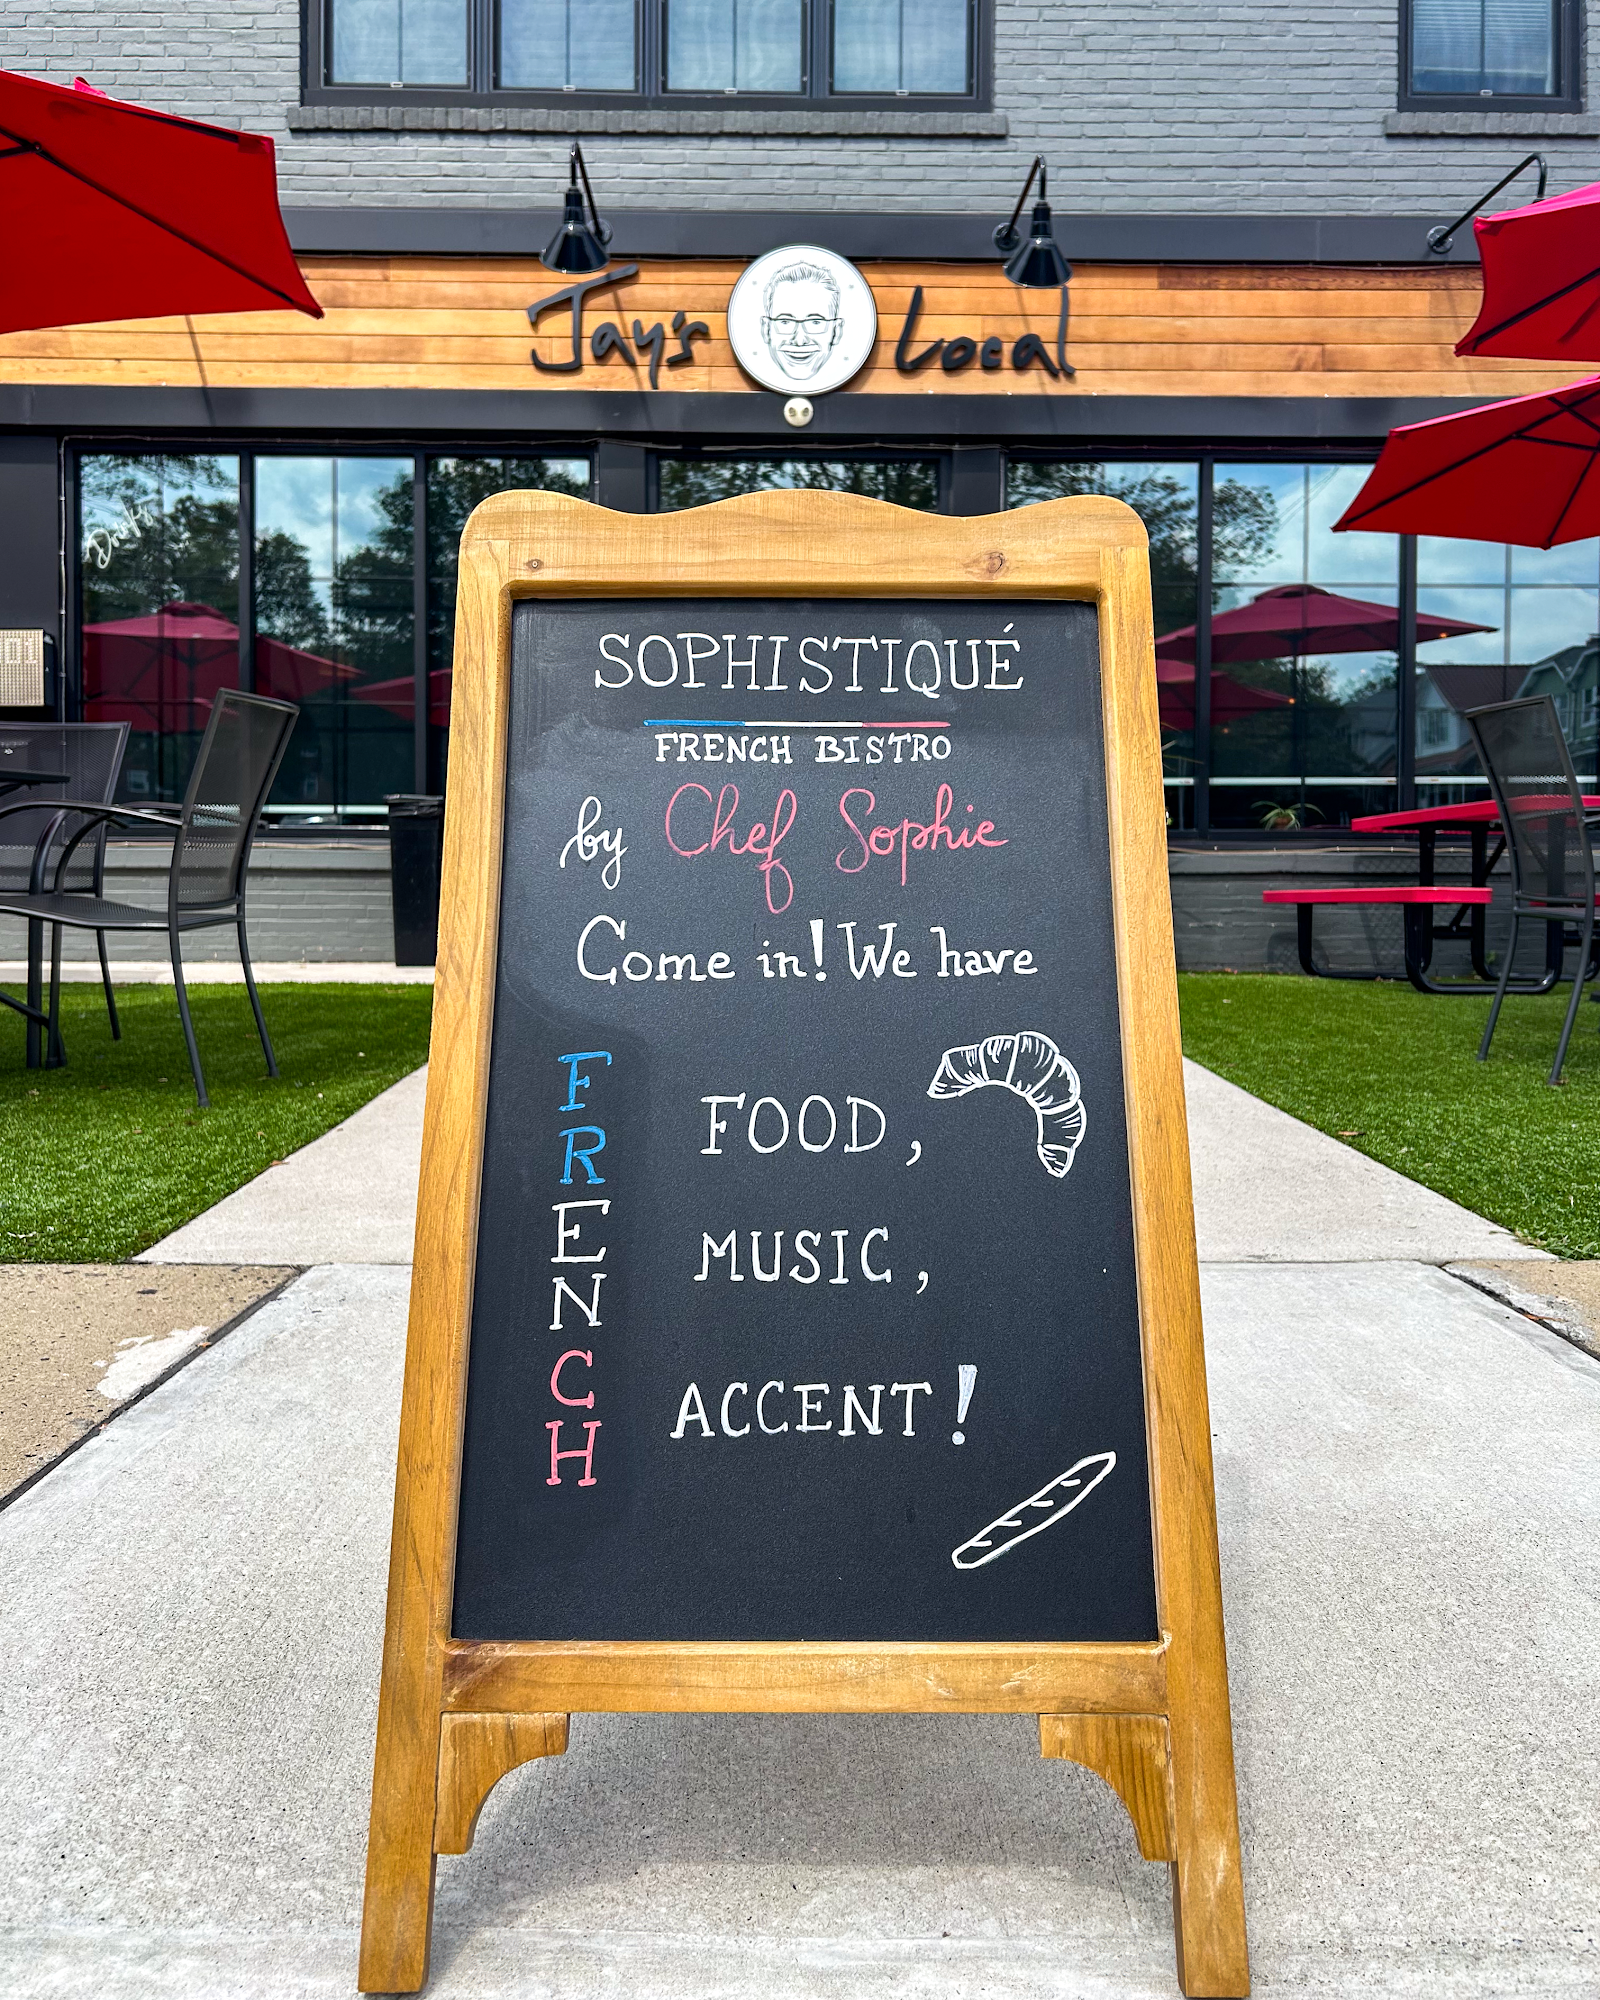 Jay's Local
Drinks
SOPHISTIQUÉ
FRENCH BISTRO
by Chef Sophie
Come in! We have
FRENCH
FOOD,
MUSIC,
ACCENT!